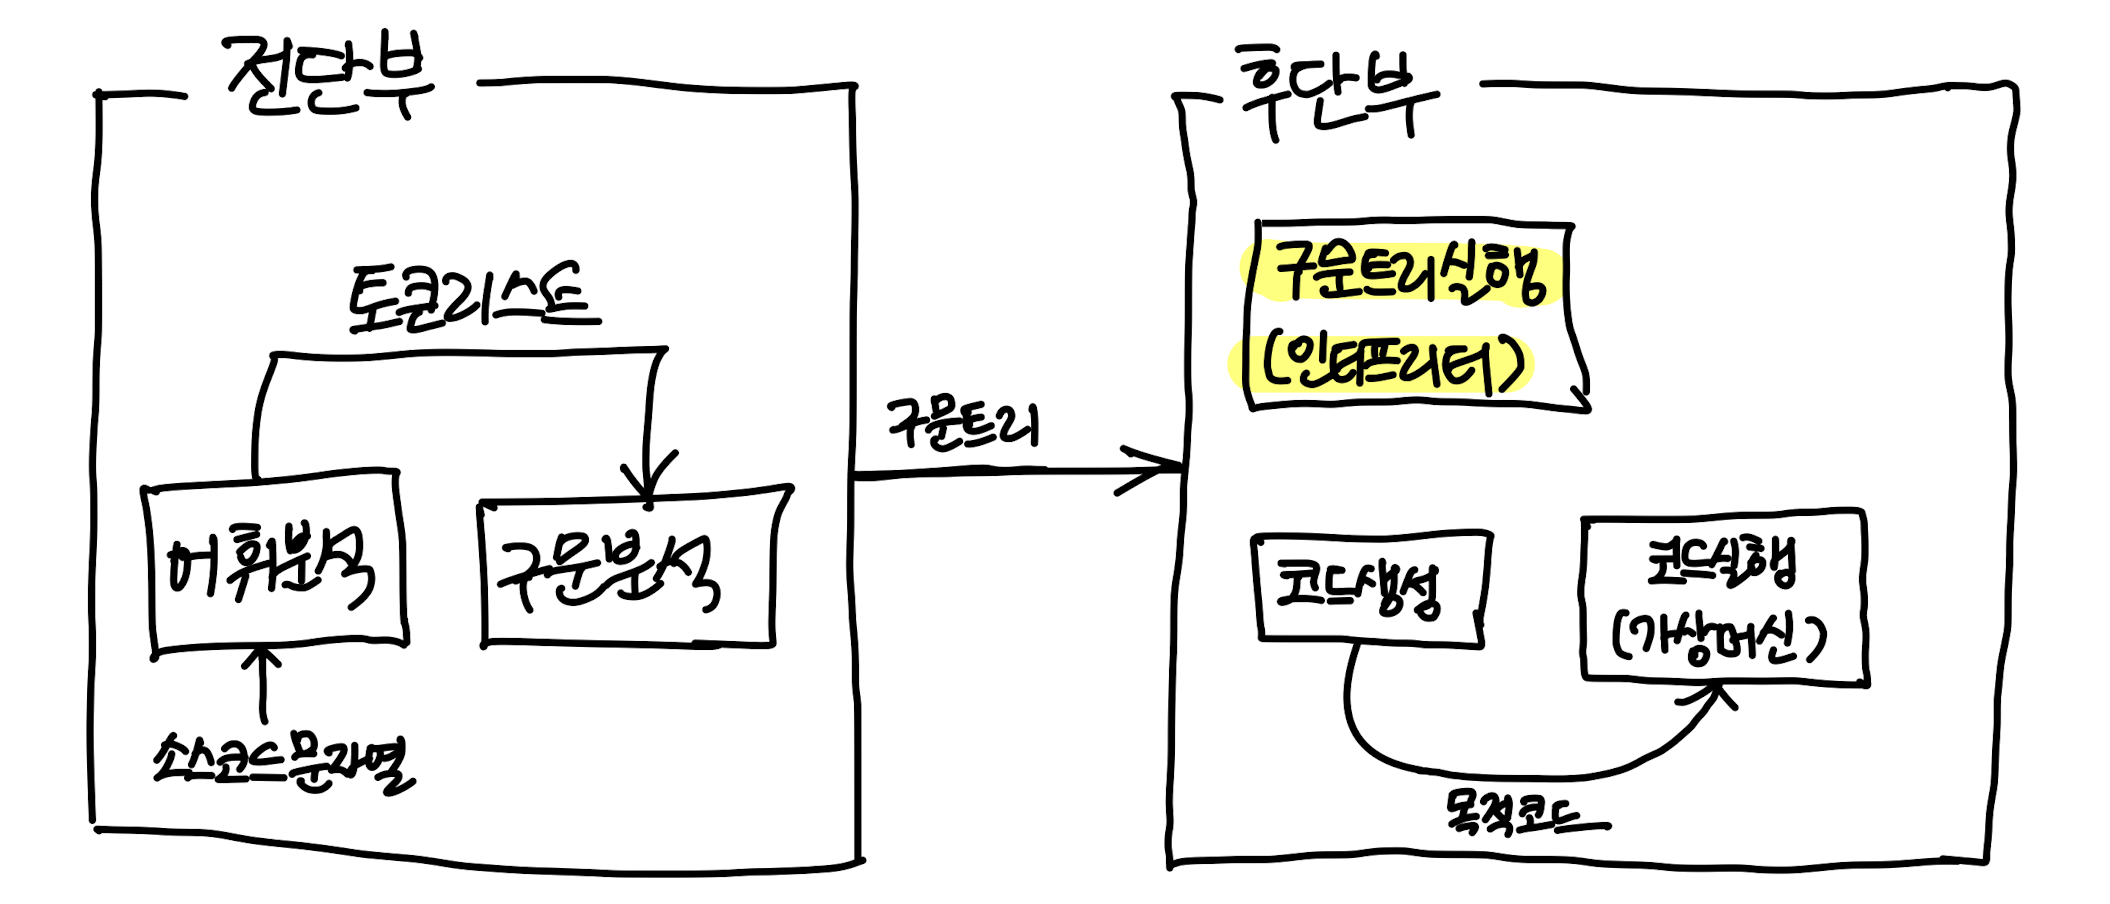 전단부
토큰리스트
어휘분석
구문분석
소스코드문자열
구문트리
후단부
구문트리실행
(인터프리터)
코드생성
코드실행
(가상머신)
목적코드